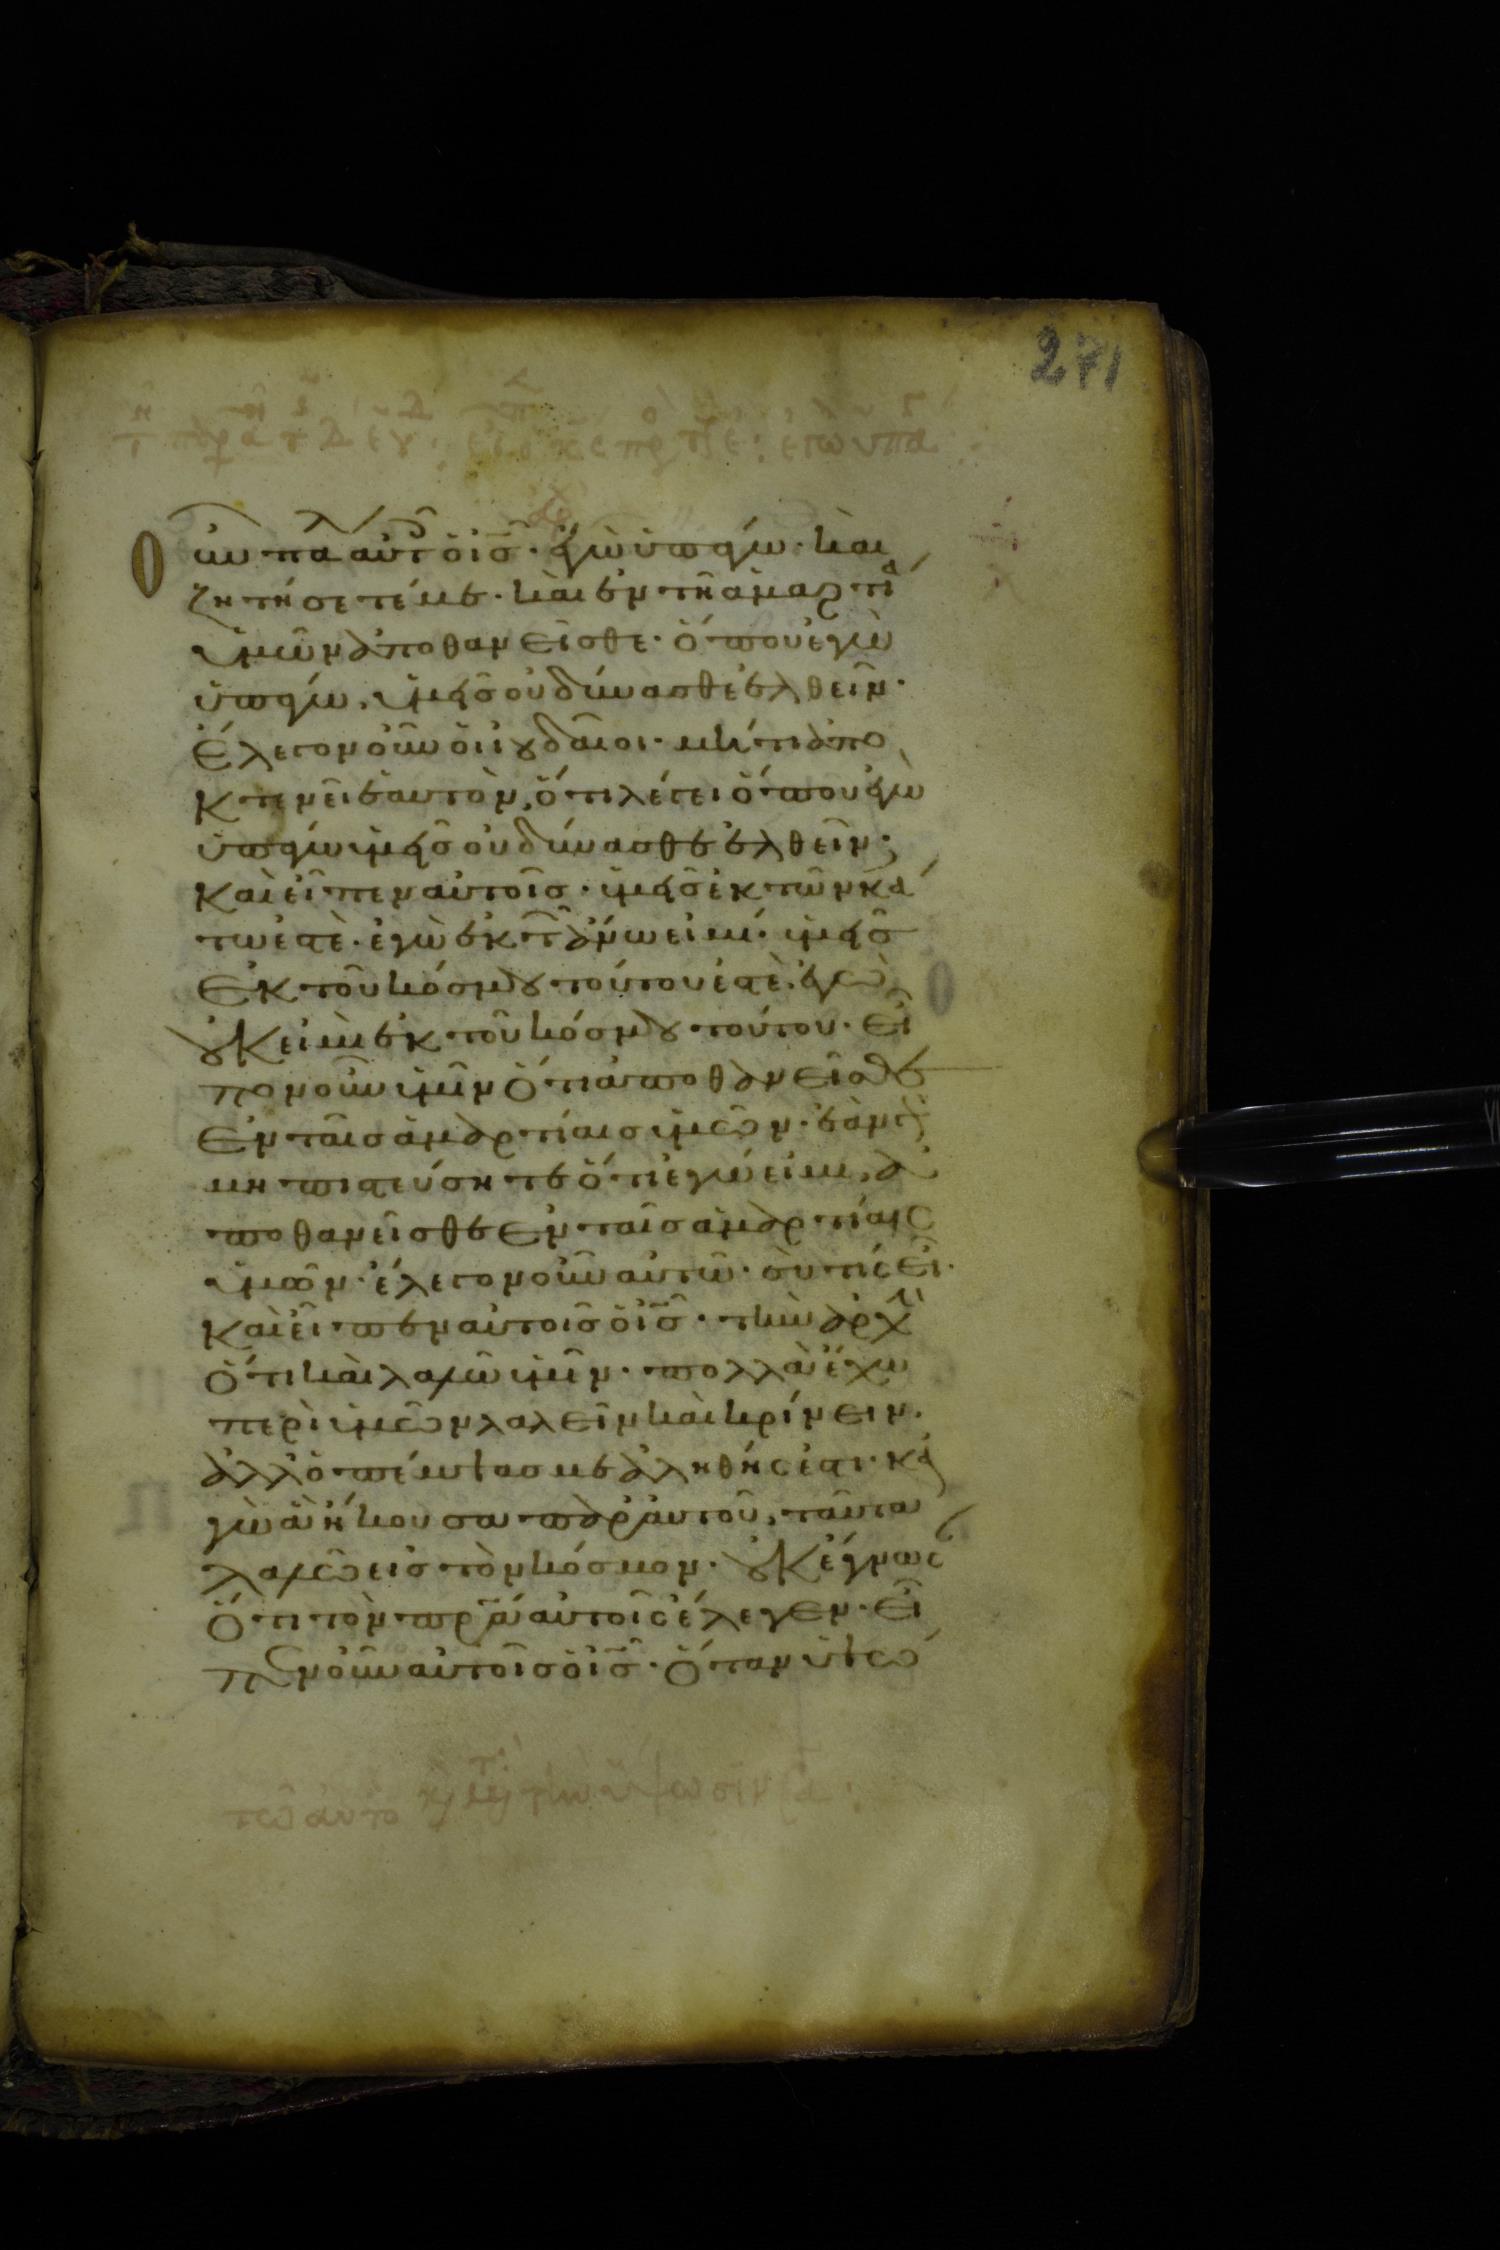 271
Οὖν πα αὐτ ὁ ις· ἐγὼ ὑπάγω· καὶ
ζητήσετέ με· καὶ ἐν τῆ ἁμαρτία
ὑμῶν ἀποθανεῖσθε· ὅπου ἐγὼ
ὑπάγω, ὑμεῖς οὐ δύνασθε ἐλθεῖν·
Ἔλεγον οὖν οἱ ἰουδαῖοι· μήτι ἀπο
κτενεῖ ἑαυτὸν, ὅτι λέγει ὅπου ἐγὼ
ὑπάγω ὑμεῖς οὐ δύνασθε ἐλθεῖν·
Καὶ εἶπεν αὐτοῖς· ὑμεῖς ἐκ τῶν κά
τω ἐστέ· ἐγὼ ἐκ τῶν ἄνω εἰμί· ὑμεῖς
Ἐκ τοῦ κόσμου τούτου ἐστέ· ἐγὼ
οὐκ εἰμὶ ἐκ τοῦ κόσμου τούτου· εἶ
πον οὖν ὑμῖν ὅτι ἀποθανεῖσθε
Ἐν ταῖς ἁμαρτίαις ὑμῶν· ἐὰν γὰρ
μὴ πιστεύσητε ὅτι ἐγώ εἰμι, ἀ
ποθανεῖσθε ἐν ταῖς ἁμαρτίαις
ὑμῶν· ἔλεγον οὖν αὐτῶ· σὺ τίς εἶ·
Καὶ εἶπεν αὐτοῖς ὁ ις· τὴν ἀρχὴν
Ὅτι καὶ λαλῶ ὑμῖν· πολλὰ ἔχω
περὶ ὑμῶν λαλεῖν καὶ κρίνειν·
ἀλλ' ὁ πέμψας με ἀληθής ἐστι· κἀ
γὼ ἃ ἤκουσα παρ' αὐτοῦ, ταῦτα
λαλῶ εἰς τὸν κόσμον· οὐκ ἔγνως
Ὅτι τὸν πρα αὐτοῖς ἔλεγεν· εἶ
πεν οὖν αὐτοῖς ὁ ις· ὅταν ὑψώ